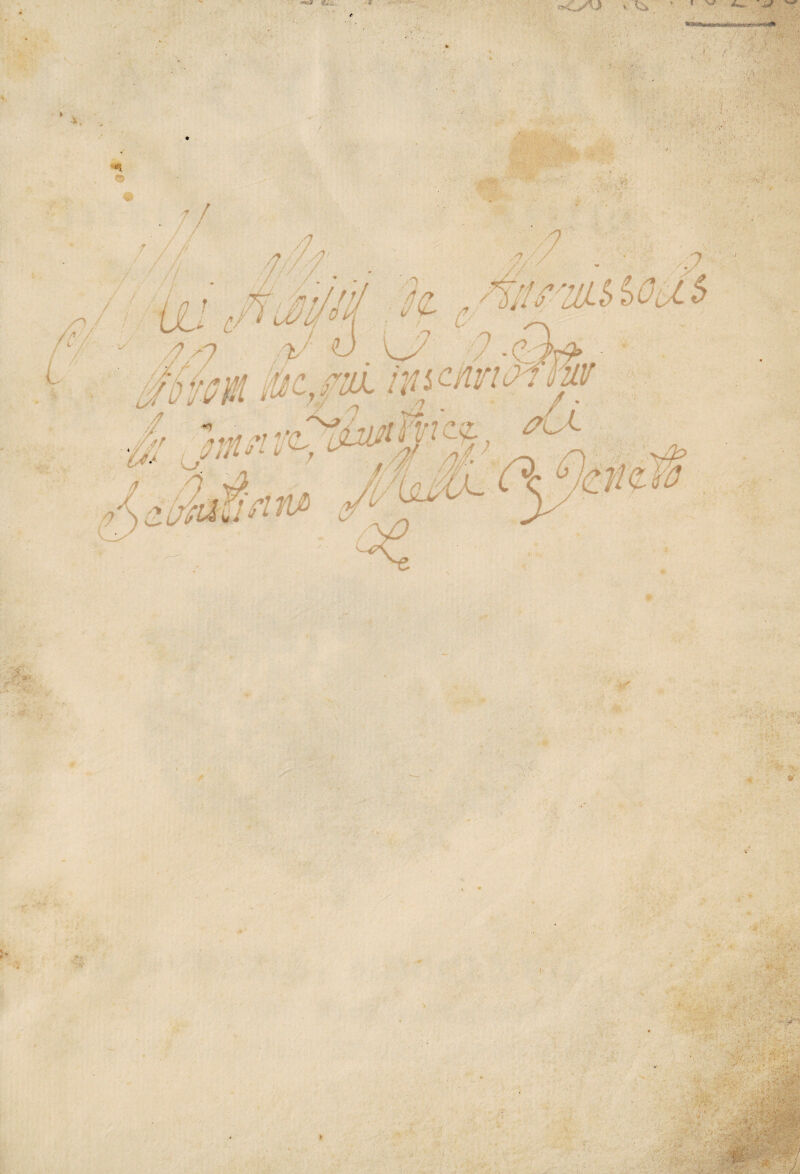 Mei Aloijsij de Anguissolis
librum hic, qui inschribitur
La Comare, leuatrice, di
Sebastiano Melli Veneto